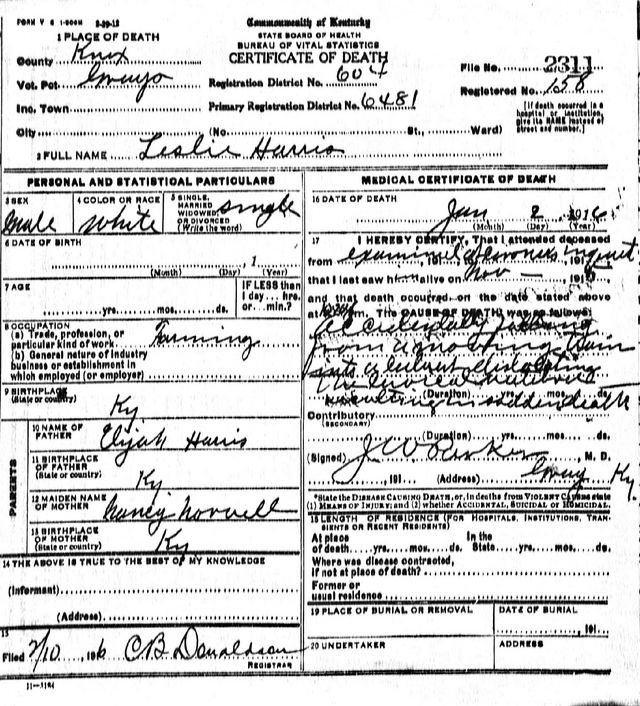 FORM V S 1-500M 2-29-12
Commonwealth of Kentucky
STATE BOARD OF HEALTH
BUREAU OF VITAL STATISTICS
CERTIFICATE OF DEATH
1 PLACE OF DEATH
County Knox
Vot. Pct.
Inc. Town
City (No. St., Ward)
Registration District No. 604
Primary Registration District No. 6481
File No. 2311
Registered No. 158
[If death occurred in a
hospital or institution,
give its NAME instead of
street and number.]
2 FULL NAME Leslie Harris
PERSONAL AND STATISTICAL PARTICULARS
3 SEX
male
4 COLOR OR RACE
white
5 SINGLE,
MARRIED
WIDOWED,
OR DIVORCED
(Write the word)
single
6 DATE OF BIRTH
, 1
(Month) (Day) (Year)
7 AGE
yrs. mos. ds.
IF LESS than
1 day... hrs.
or... min.?
8 OCCUPATION
(a) Trade, profession, or
particular kind of work Farming
(b) General nature of industry
business or establishment in
which employed (or employer)
9 BIRTHPLACE
(State or country)
Ky
PARENTS
10 NAME OF
FATHER
Elijah Harris
11 BIRTHPLACE
OF FATHER
(State or country)
Ky
12 MAIDEN NAME
OF MOTHER
Nancy Norvell
13 BIRTHPLACE
OF MOTHER
(State or country)
Ky
14 THE ABOVE IS TRUE TO THE BEST OF MY KNOWLEDGE
(Informant)
(Address)
15
Filed 2/10, 1916 C B Donaldson
REGISTRAR
11-3184
MEDICAL CERTIFICATE OF DEATH
16 DATE OF DEATH
Jan 2, 1916
(Month) (Day) (Year)
17 I HEREBY CERTIFY, That I attended deceased
from examined at coroners inquest
that I last saw him alive on Nov 191
and that death occurred on the date stated above
at m. The CAUSE OF DEATH was as follows:
Accidentaly falling
from a moving train
into a culvert dislocating
the cervical vertebra
(Duration) yrs. mos. ds.
resulting in sudden death
Contributory
(SECONDARY)
(Duration) yrs. mos. ds.
(Signed) J W Parker, M. D.
, 191 (Address) Gray Ky.
*State the DISEASE CAUSING DEATH, or, in deaths from VIOLENT CAUSES state
(1) MEANS OF INJURY; and (2) whether ACCIDENTAL, SUICIDAL or HOMICIDAL.
18 LENGTH OF RESIDENCE (FOR HOSPITALS, INSTITUTIONS, TRAN-
SIENTS OR RECENT RESIDENTS)
At place In the
of death yrs. mos. ds. State yrs. mos. ds.
Where was disease contracted,
if not at place of death?
Former or
usual residence
19 PLACE OF BURIAL OR REMOVAL
DATE OF BURIAL
, 191
20 UNDERTAKER
ADDRESS